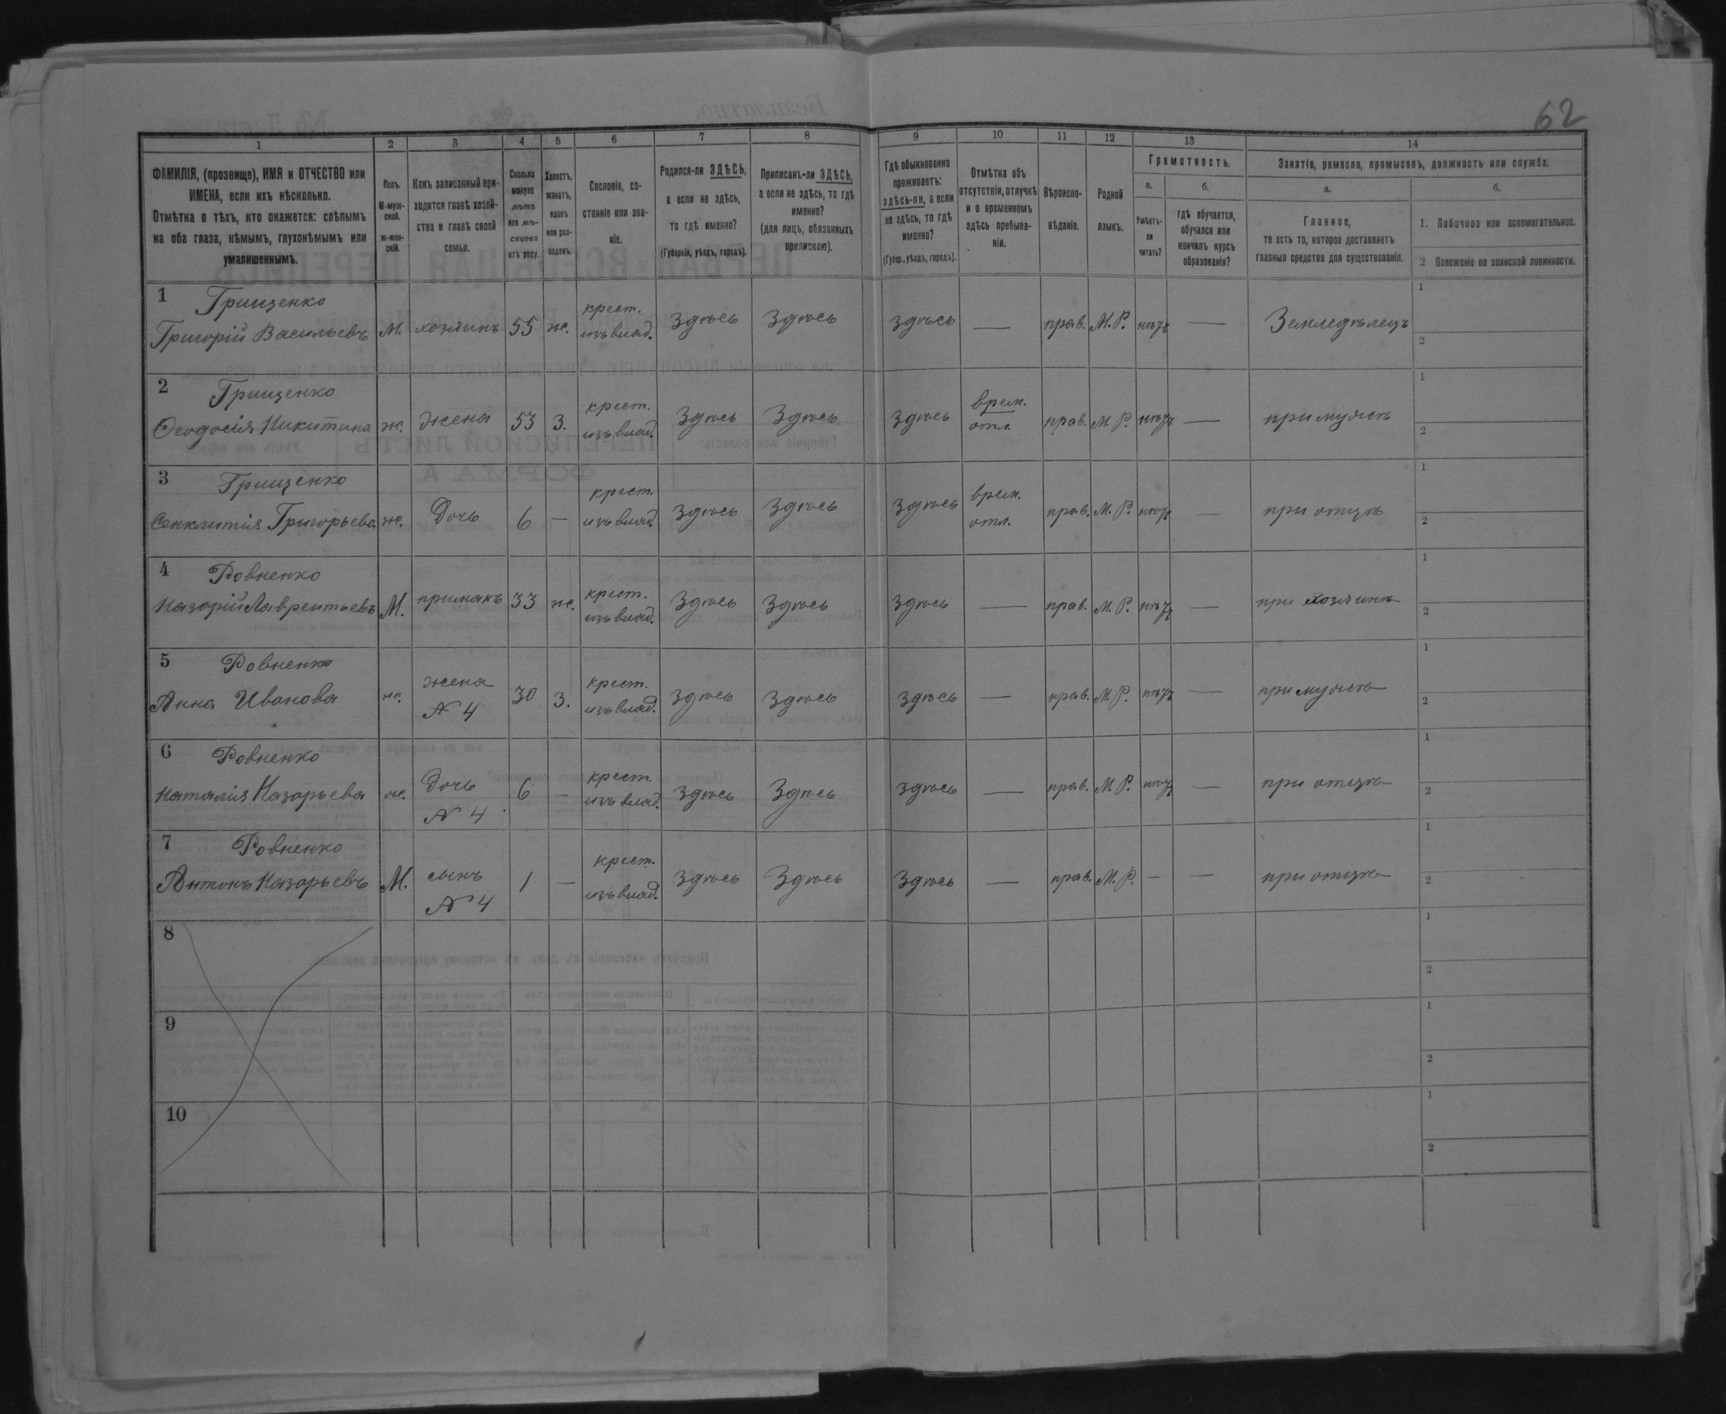 62
1 2 3 4 5 6 7 8 9 10 11 12 13 14
ФАМИЛІЯ, (прозвище), ИМЯ и ОТЧЕСТВО или
ИМЕНА, если ихъ нѣсколько.
Отмѣтка о тѣхъ, кто окажется: слѣпымъ
на оба глаза, нѣмымъ, глухонѣмымъ или
умалишеннымъ.
Полъ.
М-муж-
ской.
ж-жен-
скій.
Какъ записанный при-
ходится главѣ хозяй-
ства и главѣ своей
семьи.
Сколько
минуло
лѣтъ
или мѣ-
сяцевъ
отъ роду.
Холостъ,
женатъ,
вдовъ
или раз-
веденъ.
Сословіе, со-
стояніе или зва-
ніе.
Родился-ли ЗДѢСЬ,
а если не здѣсь,
то гдѣ именно?
(Губернія, уѣздъ, городъ).
Приписанъ-ли ЗДѢСЬ,
а если не здѣсь, то гдѣ
именно?
(для лицъ, обязанныхъ
припискою).
Гдѣ обыкновенно
проживаетъ:
здѣсь-ли, а если
не здѣсь, то гдѣ
именно?
(Губер., уѣздъ, городъ).
Отмѣтка объ
отсутствіи, отлучкѣ
и о временномъ
здѣсь пребыва-
ніи.
Вѣроиспо-
вѣданіе.
Родной
языкъ.
Грамотность.
а.
Умѣетъ-
ли
читать?
б.
гдѣ обучается,
обучался или
кончилъ курсъ
образованія?
Занятіе, ремесло, промыселъ, должность или служба.
а.
Главное,
то есть то, которое доставляетъ
главныя средства для существованія.
б.
1. Побочное или вспомогательное.
2 Положеніе по воинской повинности.
1 Грищенко крест. 1
Григорій Васильевъ М. хозяинъ 55 ж. изъ влад. Здѣсь Здѣсь здѣсь — прав. М.Р. нѣтъ — Земледѣлецъ 2
2 Грищенко крест. врем. 1
Ѳеодосія Никитина ж. жена 53 З. изъ влад. Здѣсь Здѣсь здѣсь отл. прав. М.Р. нѣтъ — при мужѣ 2
3 Грищенко крест. врем. 1
Синклитія Григорьева ж. дочь 6 — изъ влад. Здѣсь Здѣсь здѣсь отл. прав. М.Р. нѣтъ — при отцѣ 2
4 Ровненко крест. 1
Назарій Лаврентьевъ М. примакъ 33 ж. изъ влад. Здѣсь Здѣсь здѣсь — прав. М.Р. нѣтъ — при хозяинѣ 2
5 Ровненко жена крест. 1
Анна Иванова ж. N 4 30 З. изъ влад. Здѣсь Здѣсь здѣсь — прав. М.Р. нѣтъ — при мужѣ 2
6 Ровненко дочь крест. 1
Наталія Назарьева ж. N 4 6 — изъ влад. Здѣсь Здѣсь здѣсь — прав. М.Р. нѣтъ — при отцѣ 2
7 Ровненко сынъ крест. 1
Антонъ Назарьевъ М. N 4 1 — изъ влад. Здѣсь Здѣсь здѣсь — прав. М.Р. — — при отцѣ 2
8 1
2
9 1
2
10 1
2